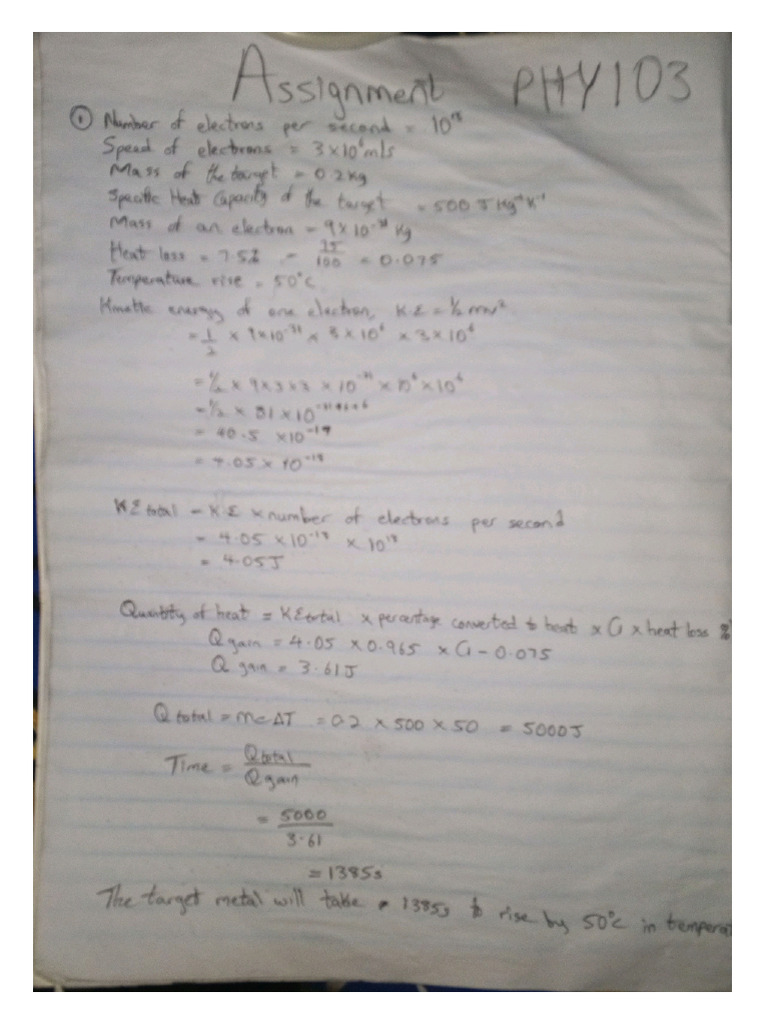 Assignment PHY103
① Number of electrons per second = 10¹⁸
Speed of electrons = 3×10⁶m/s
Mass of the target = 0.2kg
Specific Heat Capacity of the target = 500 J Kg⁻¹ K⁻¹
Mass of an electron = 9×10⁻³¹ Kg
Heat loss = 7.5% = 7.5/100 = 0.075
Temperature rise = 50°C
Kinetic energy of one electron, K.E = ½ mv²
= 1/2 × 9×10⁻³¹ × 3×10⁶ × 3×10⁶
= ½ × 9×3×3 × 10⁻³¹ × 10⁶ × 10⁶
= ½ × 81 × 10⁻³¹⁺⁶⁺⁶
= 40.5 ×10⁻¹⁹
= 4.05 × 10⁻¹⁸
KE total = K.E × number of electrons per second
= 4.05 ×10⁻¹⁸ × 10¹⁸
= 4.05J
Quantity of heat = KEtotal × percentage converted to heat × (1 × heat loss %
Q gain = 4.05 ×0.965 × (1 - 0.075
Q gain = 3.61J
Q total = mcΔT = 0.2 × 500 × 50 = 5000J
Time = Qtotal/Qgain
= 5000/3.61
= 1385s
The target metal will take 1385s to rise by 50°c in tempera